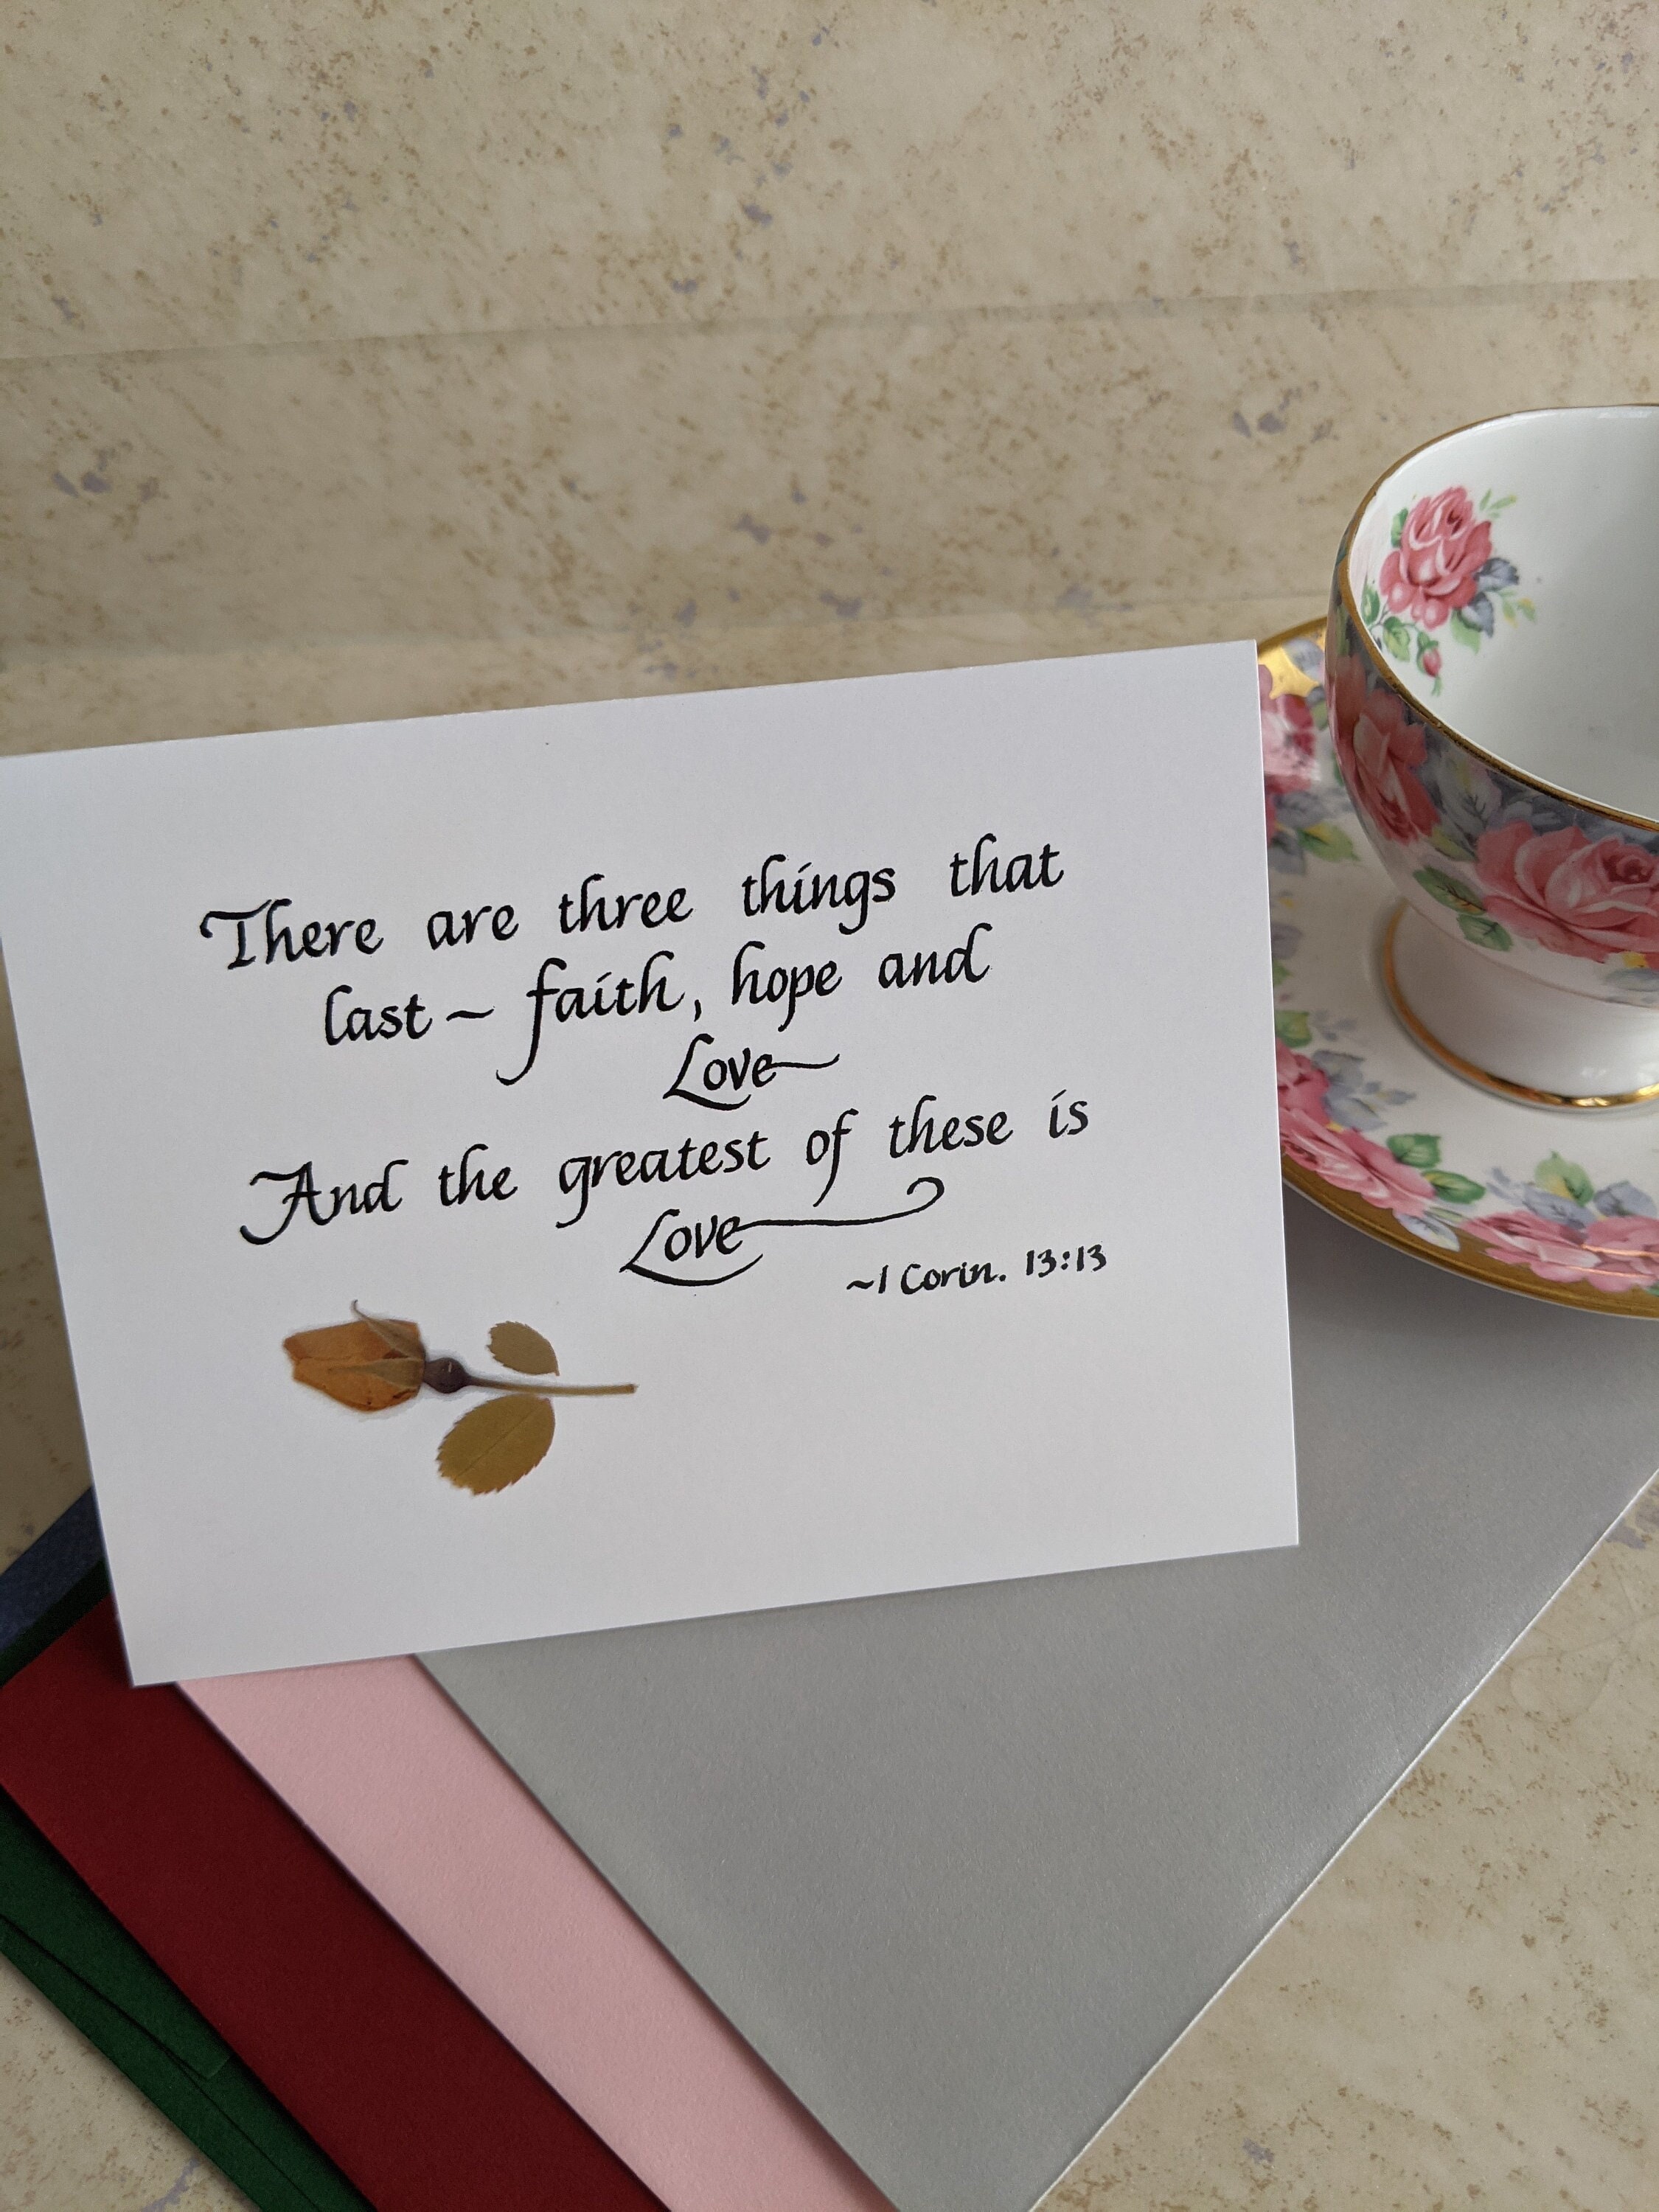 There are three things that
last ~ faith, hope and
Love
And the greatest of these is
Love
~1 Corin. 13:13